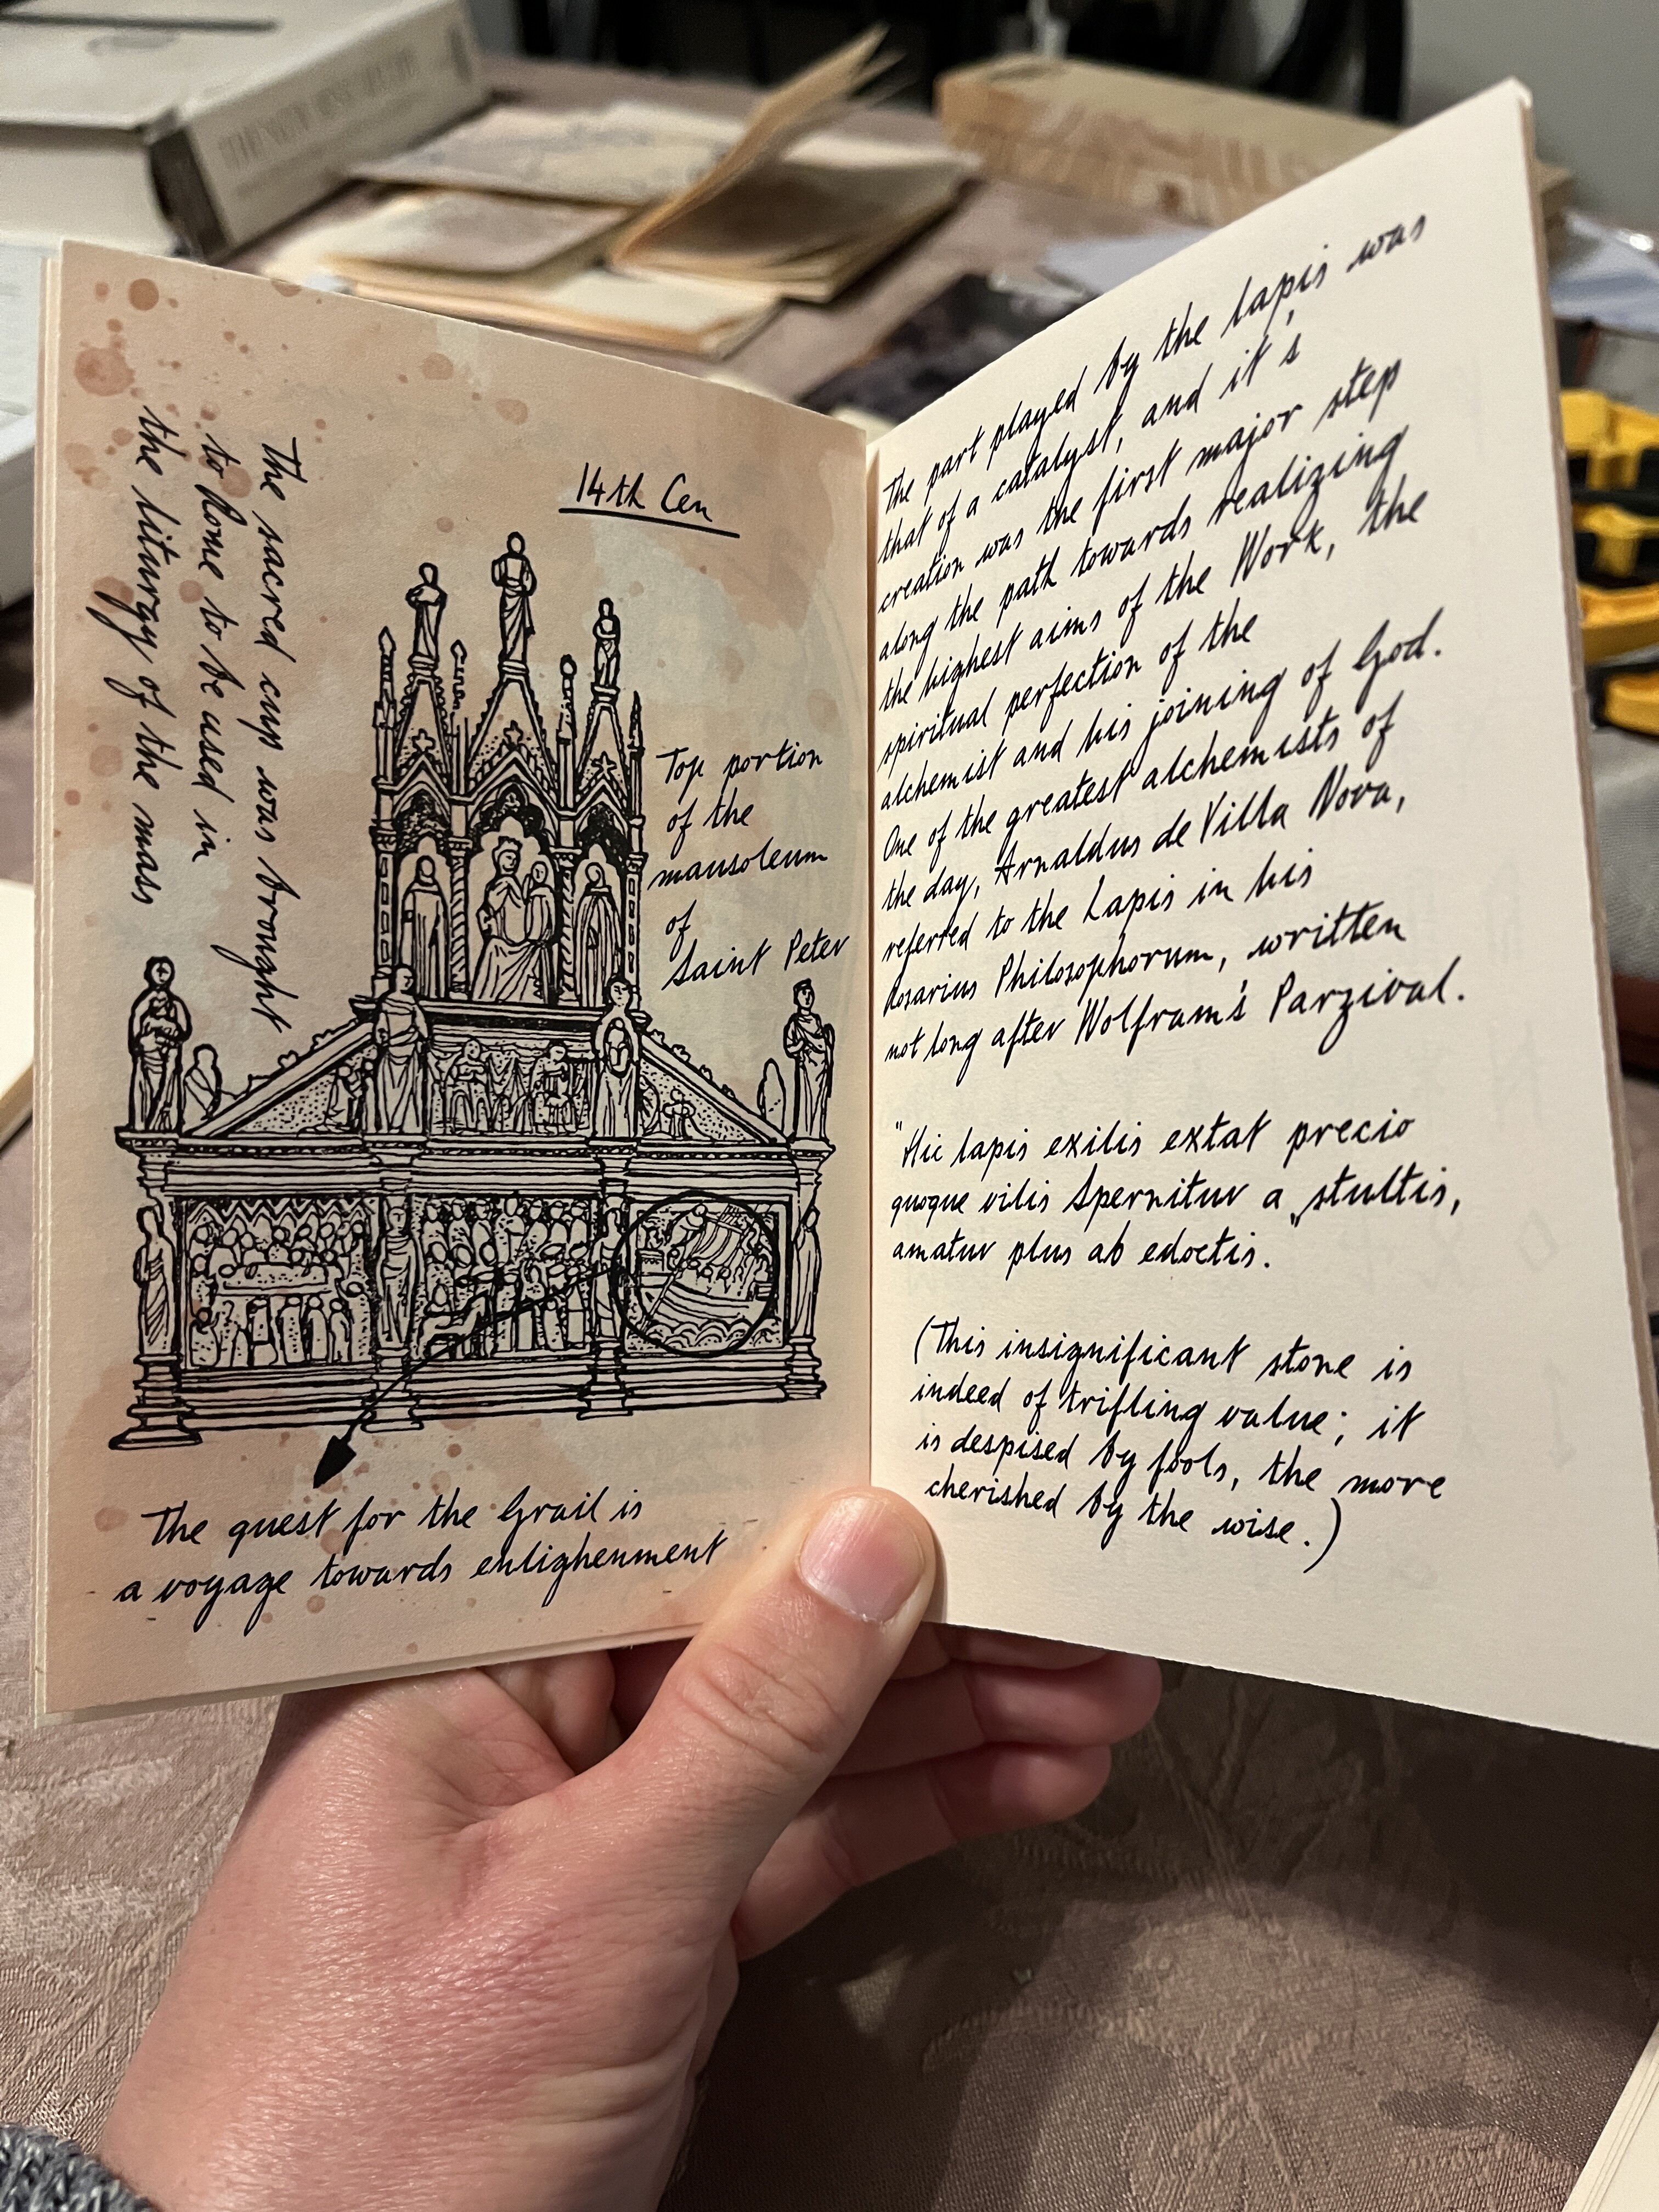 The sacred cup was brought
to Rome to be used in
the liturgy of the mass
14th Cen
Top portion
of the
mausoleum
of
Saint Peter
The quest for the Grail is
a voyage towards enlighenment
The part played by the lapis was
that of a catalyst, and it's
creation was the first major step
along the path towards realizing
the highest aims of the Work, the
spiritual perfection of the
alchemist and his joining of God.
One of the greatest alchemists of
the day, Arnaldus de Villa Nova,
referred to the Lapis in his
Rosarius Philosophorum, written
not long after Wolfram's Parzival.
"Hic lapis exilis extat precio
quoque vilis Spernitur a stultis,
amatur plus ab edoctis."
(This insignificant stone is
indeed of trifling value; it
is despised by fools, the more
cherished by the wise.)